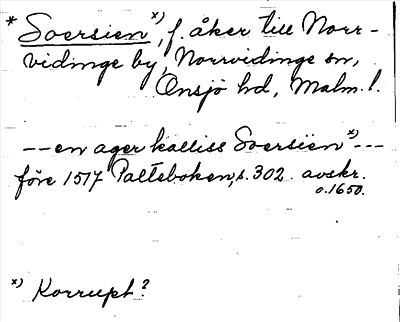 * Soersien x), f. åker till Norr-
vidinge by, Norrvidinge sn,
Onsjö hd, Malm. l.
--en ager kalliss Soersien x)---
före 1517 Palteboken, s. 302. avskr.
o. 1650.
x) Korrupt?